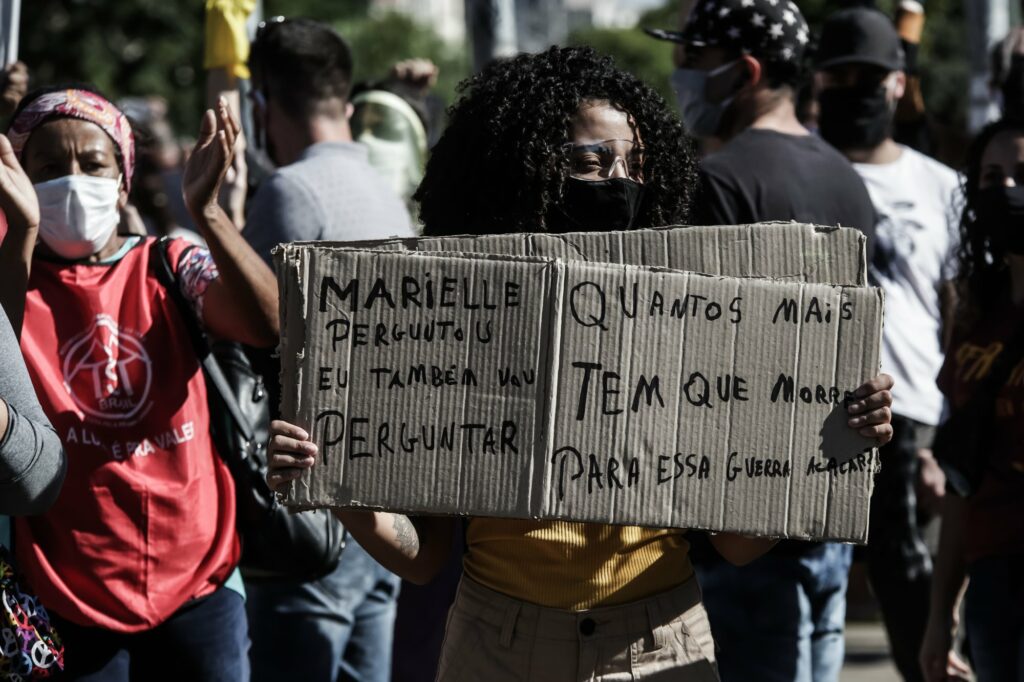 MARIELLE
PERGUNTOU
EU TAMBÉM VOU
PERGUNTAR
QUANTOS MAIS
TEM QUE MORRE
PARA ESSA GUERRA
BRASIL
É PRA VALER